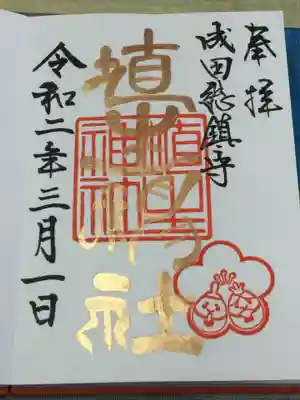 奉拝
成田総鎮守
埴生神社
令和二年三月一日